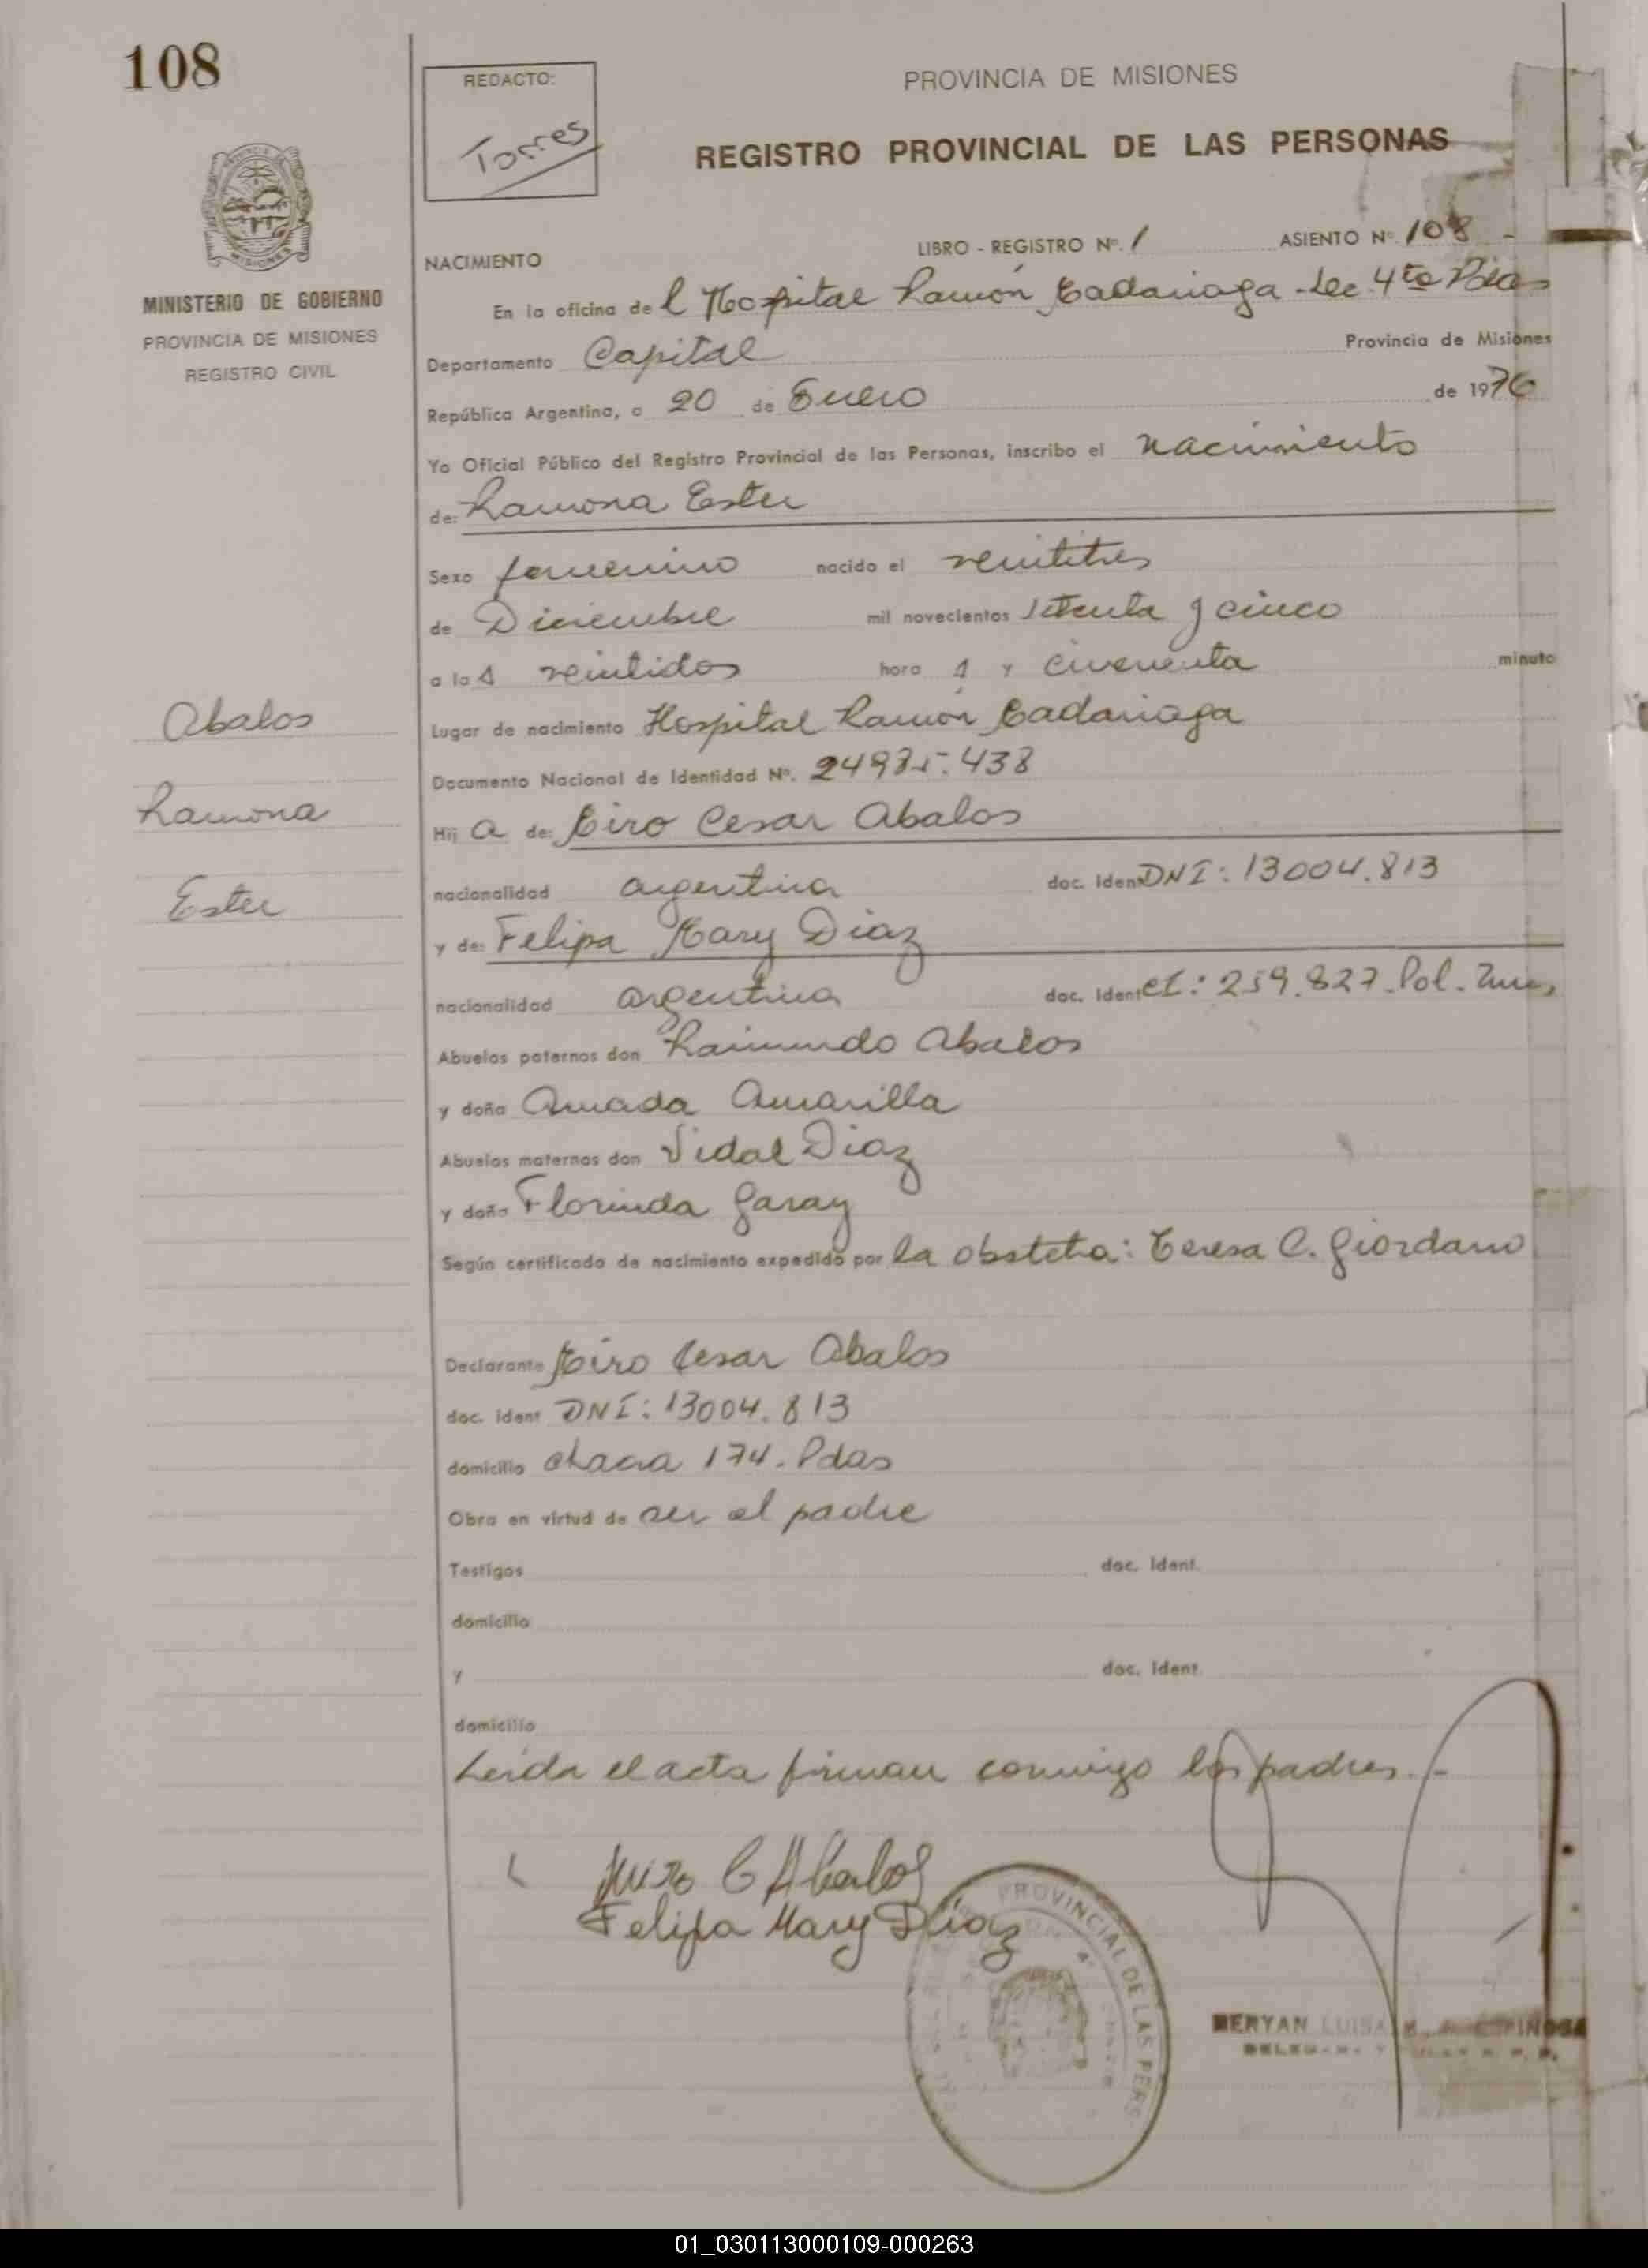 108
REDACTO:
Torres
PROVINCIA DE MISIONES
REGISTRO PROVINCIAL DE LAS PERSONAS
MINISTERIO DE GOBIERNO
PROVINCIA DE MISIONES
REGISTRO CIVIL
NACIMIENTO LIBRO - REGISTRO Nº. 1 ASIENTO Nº 108 -
En la oficina de l Hospital Ramón Madariaga - Sec 4ta Pdas
Departamento Capital Provincia de Misiones
República Argentina, a 20 de Enero de 1976
Yo Oficial Público del Registro Provincial de las Personas, inscribo el nacimiento
de: Ramona Ester
Sexo femenino nacido el veintitres
de Diciembre mil novecientos setenta y cinco
a las veintidos hora s y cincuenta minuto
Lugar de nacimiento Hospital Ramón Madariaga
Documento Nacional de Identidad Nº. 24985.438
Hij a de: Miro Cesar Abalos
nacionalidad argentina doc. Ident DNI: 13004.813
y de: Felipa Mary Diaz
nacionalidad argentina doc. Ident CI: 259.827 - Pol. Mnes
Abuelos paternos don Raimundo Abalos
y doña Amada Amarilla
Abuelos maternos don Vidal Diaz
y doña Florinda Garay
Según certificado de nacimiento expedido por la obstetra: Teresa C. Giordano
Abalos
Ramona
Ester
Declarante Miro Cesar Abalos
doc. Ident DNI: 13004.813
domicilio chacra 174. Pdas
Obra en virtud de ser el padre
Testigos doc. Ident.
domicilio
y doc. Ident.
domicilio
Leida el acta firman conmigo los padres.-
Miro C Abalos
Felipa Mary Diaz
PROVINCIAL DE LAS PERS
MERYAN LUISA M. ESPINOSA
01_030113000109-000263